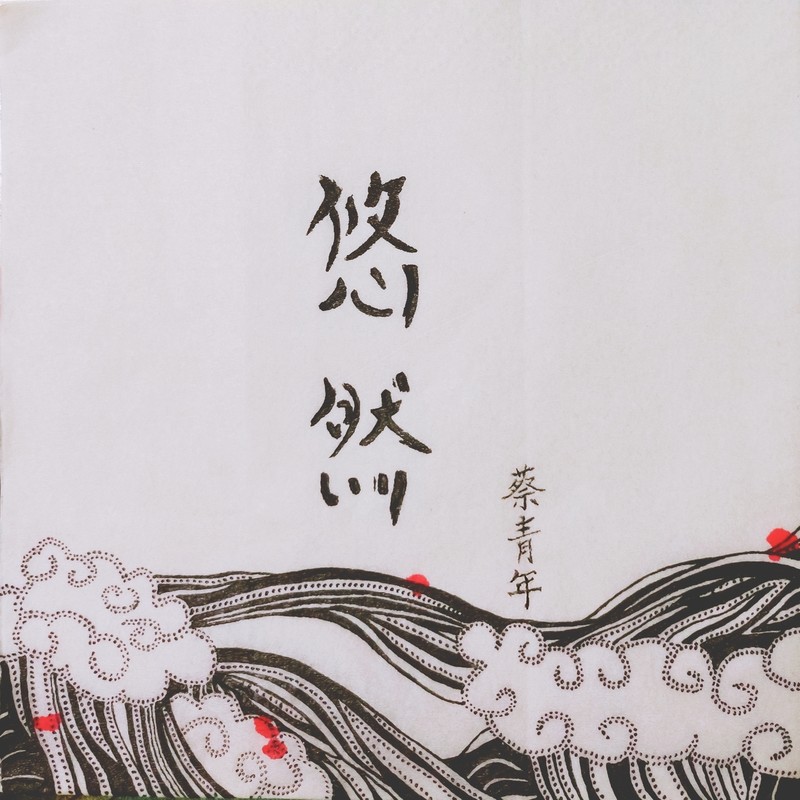 悠然
蔡青年